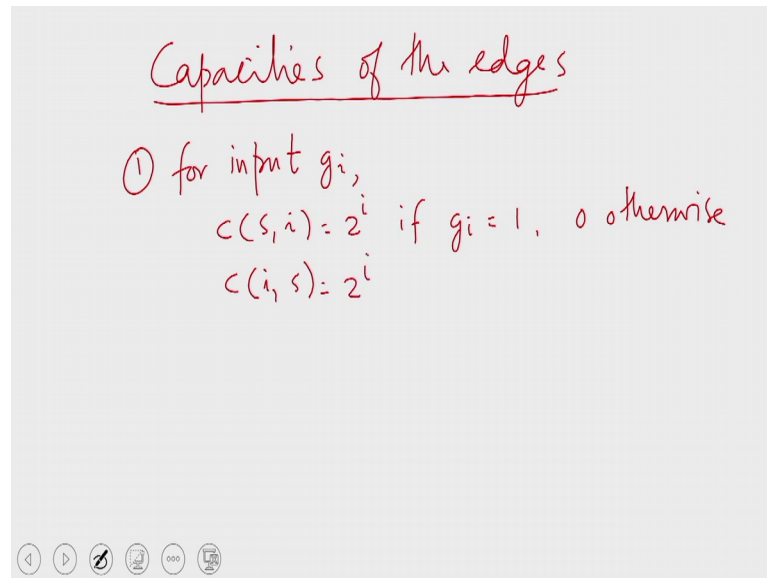 Capacities of the edges
① for input gi,
c(s, i) = 2^i if gi = 1, 0 otherwise
c(i, s) = 2^i